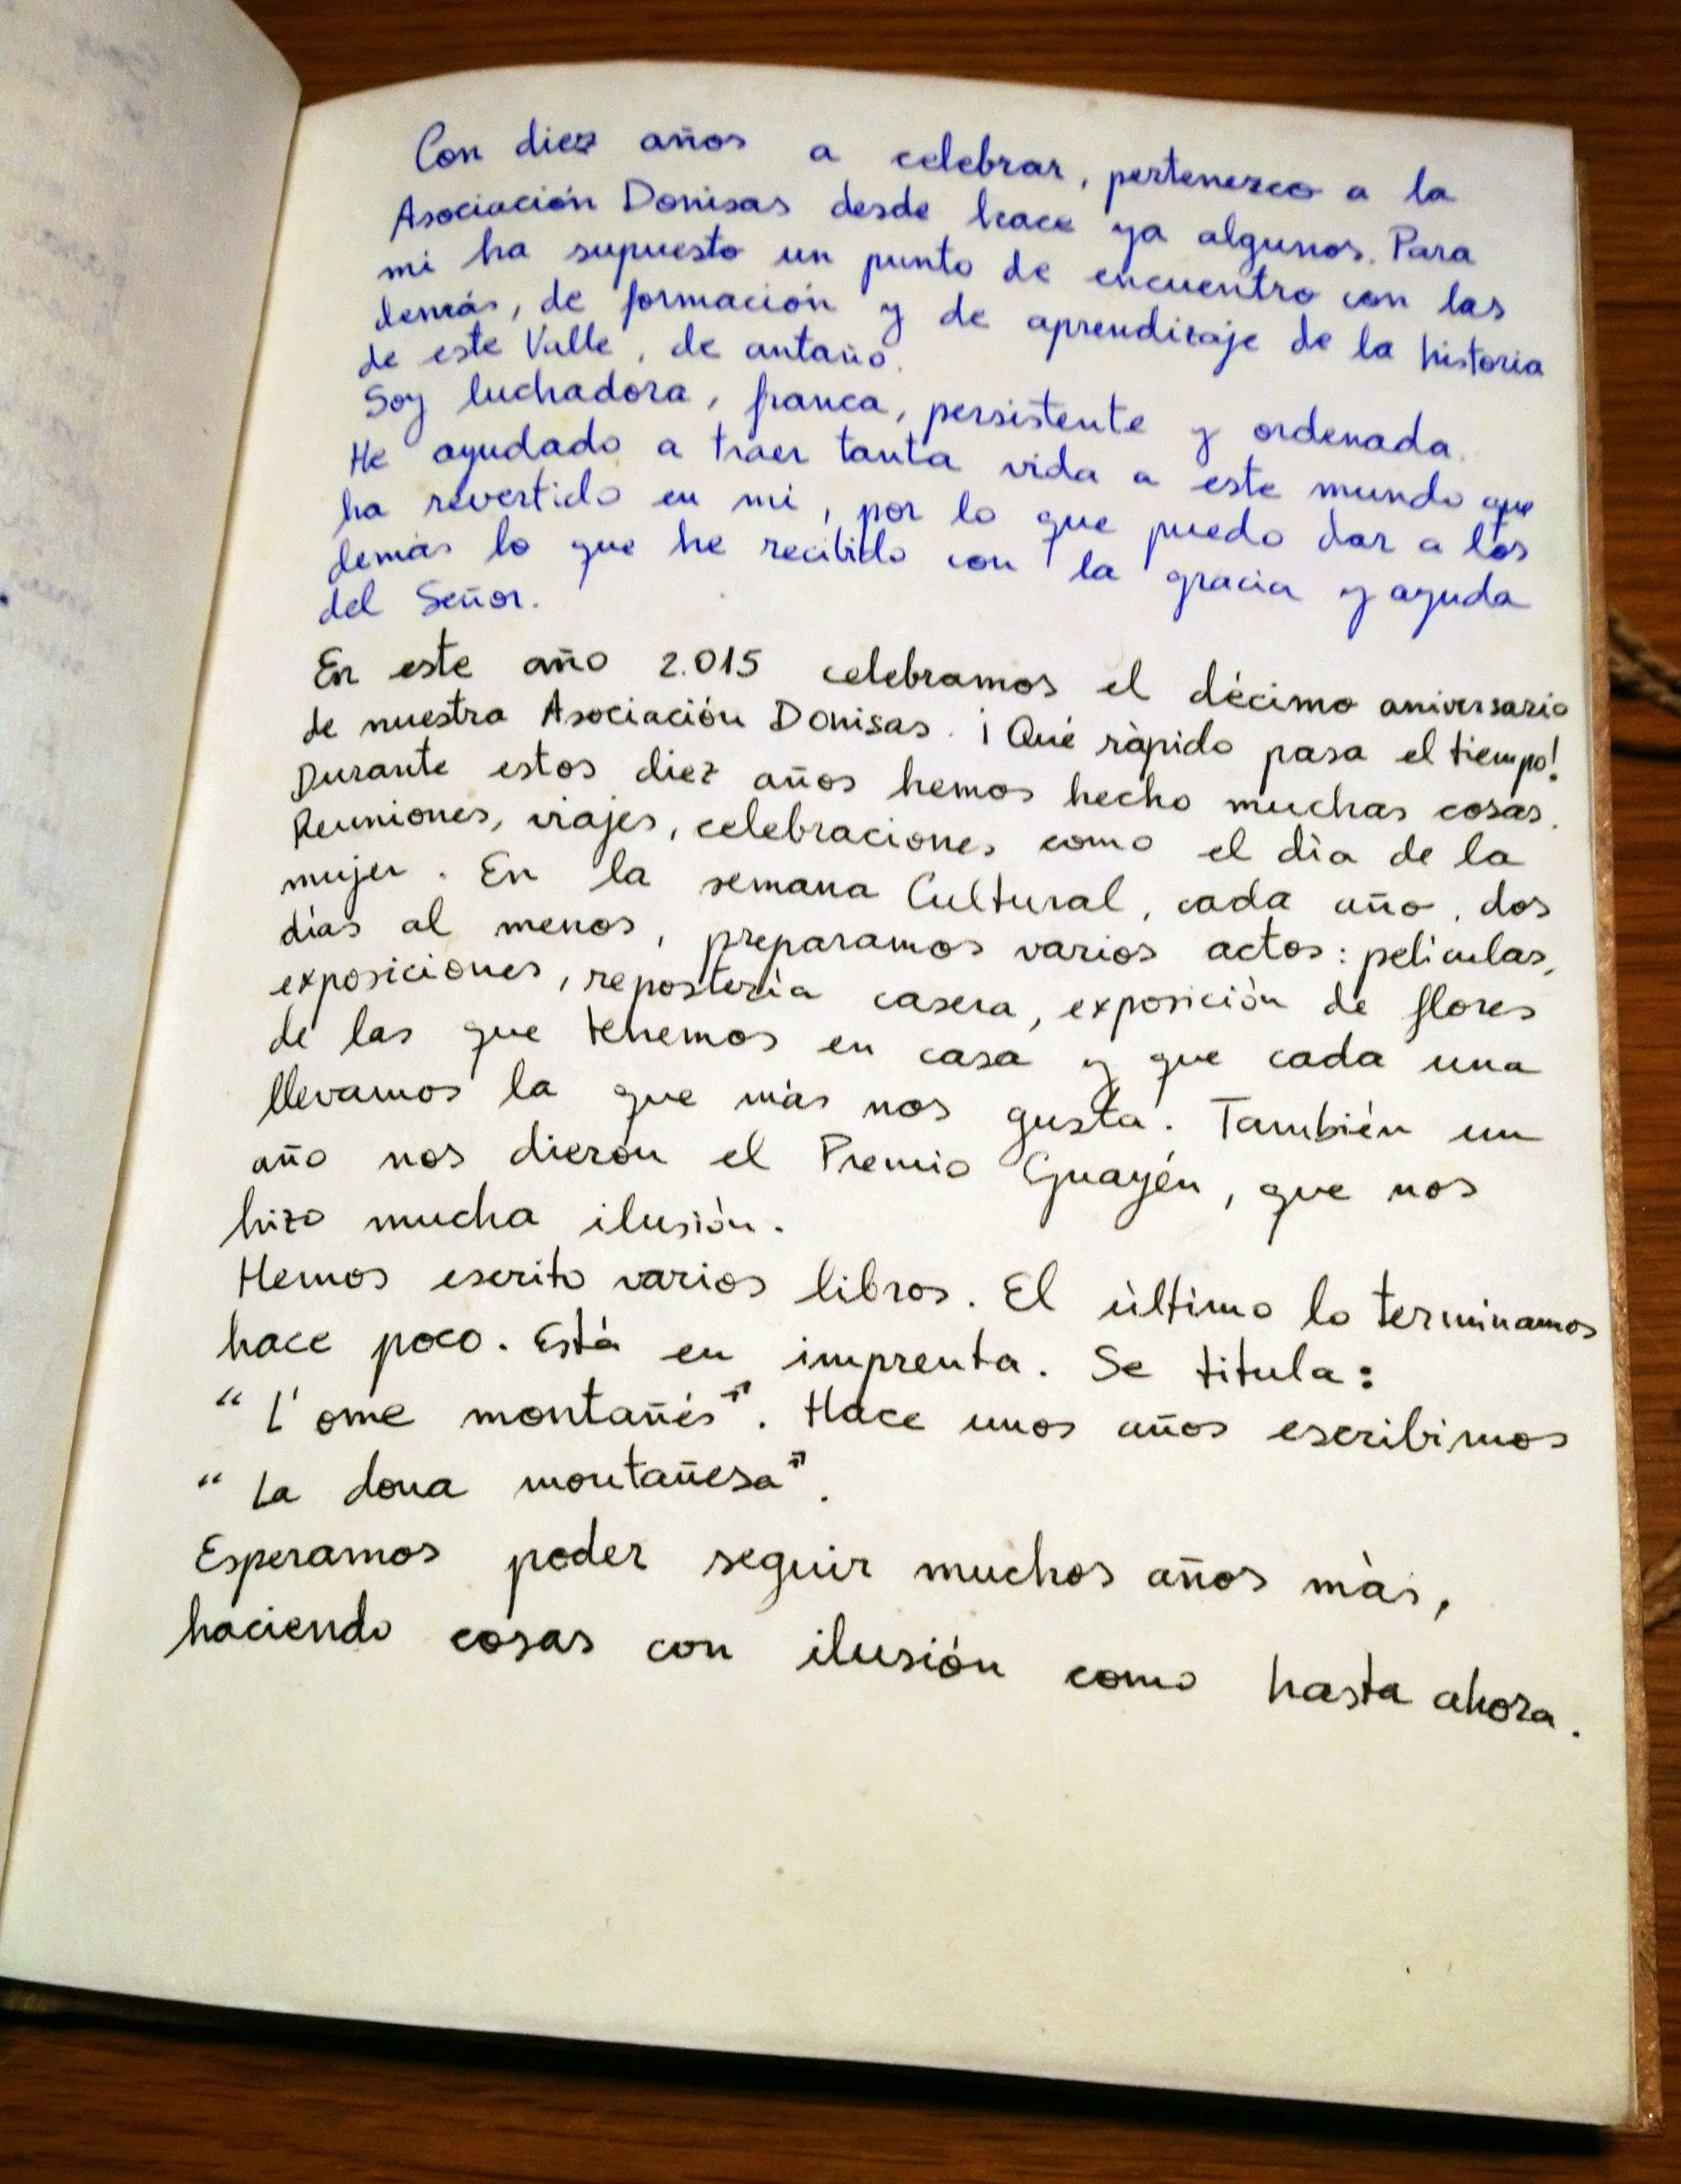 Con diez años a celebrar, pertenezco a la
Asociación Donisas desde hace ya algunos. Para
mi ha supuesto un punto de encuentro con las
demás, de formación y de aprendizaje de la historia
de este Valle, de antaño.
Soy luchadora, franca, persistente y ordenada.
He ayudado a traer tanta vida a este mundo que
ha revertido en mi, por lo que puedo dar a los
demás lo que he recibido con la gracia y ayuda
del Señor.
En este año 2.015 celebramos el décimo aniversario
de nuestra Asociación Donisas. ¡Qué ràpido pasa el tiempo!
Durante estos diez años hemos hecho muchas cosas.
Reuniones, viajes, celebraciones como el dìa de la
mujer. En la semana Cultural, cada año, dos
días al menos, preparamos varios actos: películas,
exposiciones, reposterìa casera, exposiciòn de flores
de las que tenemos en casa y que cada una
llevamos la que màs nos gusta. Tambièn un
año nos dieron el Premio Guayén, que nos
hizo mucha ilusiòn.
Hemos escrito varios libros. El ùltimo lo terminamos
hace poco. Està en imprenta. Se titula:
"L'ome montañés". Hace unos años escribimos
"La dona montañesa".
Esperamos poder seguir muchos años màs,
haciendo cosas con ilusión como hasta ahora.